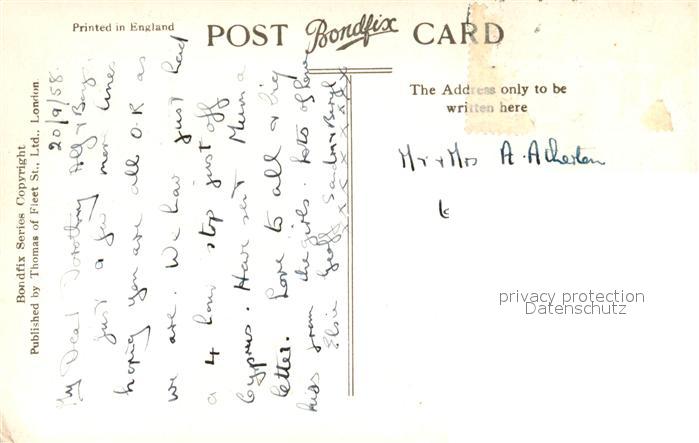 Printed in England
POST Bondfix CARD
The Address only to be
written here
Mr & Mrs A. Atherton
Bondfix Series Copyright
Published by Thomas of Fleet St., Ltd., London
20/9/58.
My Dear Dorothy Alf & Boy.
Just a few more lines
hoping you are all O.K as
we are. We have just had
a 4 hour stop just off
Cyprus. Have sent Mum a
letter. Love to all & big
kiss from the girls. Lots of love
Elsie Geoff Sandra & Beryl
xxxxxxxxx
privacy protection
Datenschutz